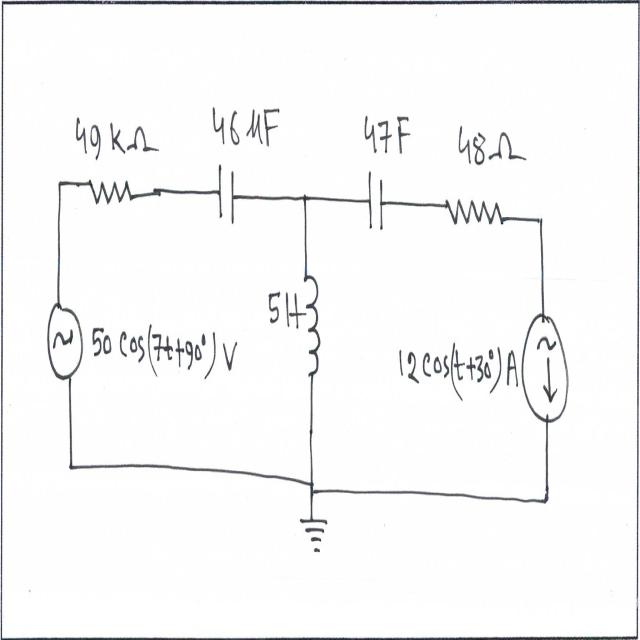 49 kΩ
46 μF
47F
48Ω
5H
50 cos(7t+90°) V
12 cos(t+30°) A